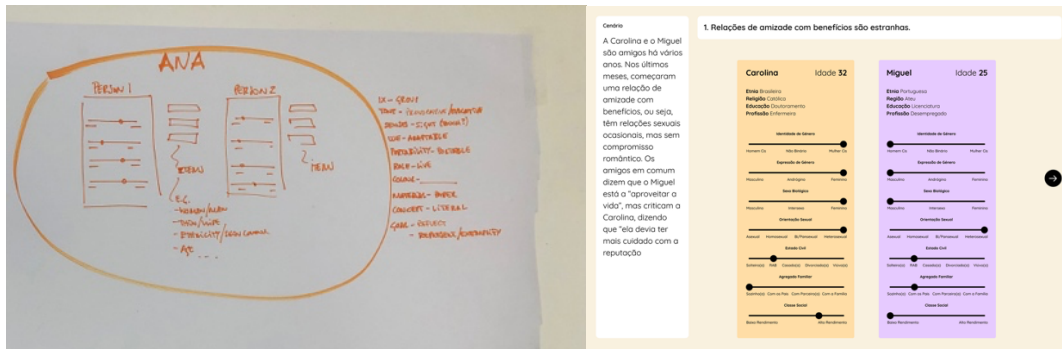 ANA
PERSON 1
PERSON 2
MEAN
MEAN
E.G.
- WOMAN/MAN
- AGE
...
IX - GROUP
USE - ADAPTABLE
PORTABILITY - PORTABLE
ROLE - LIVE
COLOUR -
MATERIALS - PAPER
CONCEPT - LITERAL
GOAL - REFLECT
Cenário
A Carolina e o Miguel
são amigos há vários
anos. Nos últimos
meses, começaram
uma relação de
amizade com
benefícios, ou seja,
têm relações sexuais
ocasionais, mas sem
compromisso
romântico. Os
amigos em comum
dizem que o Miguel
está a "aproveitar a
vida", mas criticam a
Carolina, dizendo
que "ela devia ter
mais cuidado com a
reputação
1. Relações de amizade com benefícios são estranhas.
Carolina Idade 32
Etnia Brasileira
Religião Católica
Educação Doutoramento
Profissão Enfermeira
Identidade de Género
Homem Cis Não Binário Mulher Cis
Expressão de Género
Masculino Andrógino Feminino
Sexo Biológico
Masculino Intersexo Feminino
Orientação Sexual
Assexual Homossexual Bi/Pansexual Heterossexual
Estado Civil
Solteiro(a) PAR Casado(a) Divorciado(a) Viúvo(a)
Agregado Familiar
Sozinho(a) Com os Pais Com Parceiro(a) Com a Família
Classe Social
Baixo Rendimento Alto Rendimento
Miguel Idade 25
Etnia Portuguesa
Região Ateu
Educação Licenciatura
Profissão Desempregado
Identidade de Género
Homem Cis Não Binário Mulher Cis
Expressão de Género
Masculino Andrógino Feminino
Sexo Biológico
Masculino Intersexo Feminino
Orientação Sexual
Assexual Homossexual Bi/Pansexual Heterossexual
Estado Civil
Solteiro(a) PAR Casado(a) Divorciado(a) Viúvo(a)
Agregado Familiar
Sozinho(a) Com os Pais Com Parceiro(a) Com a Família
Classe Social
Baixo Rendimento Alto Rendimento